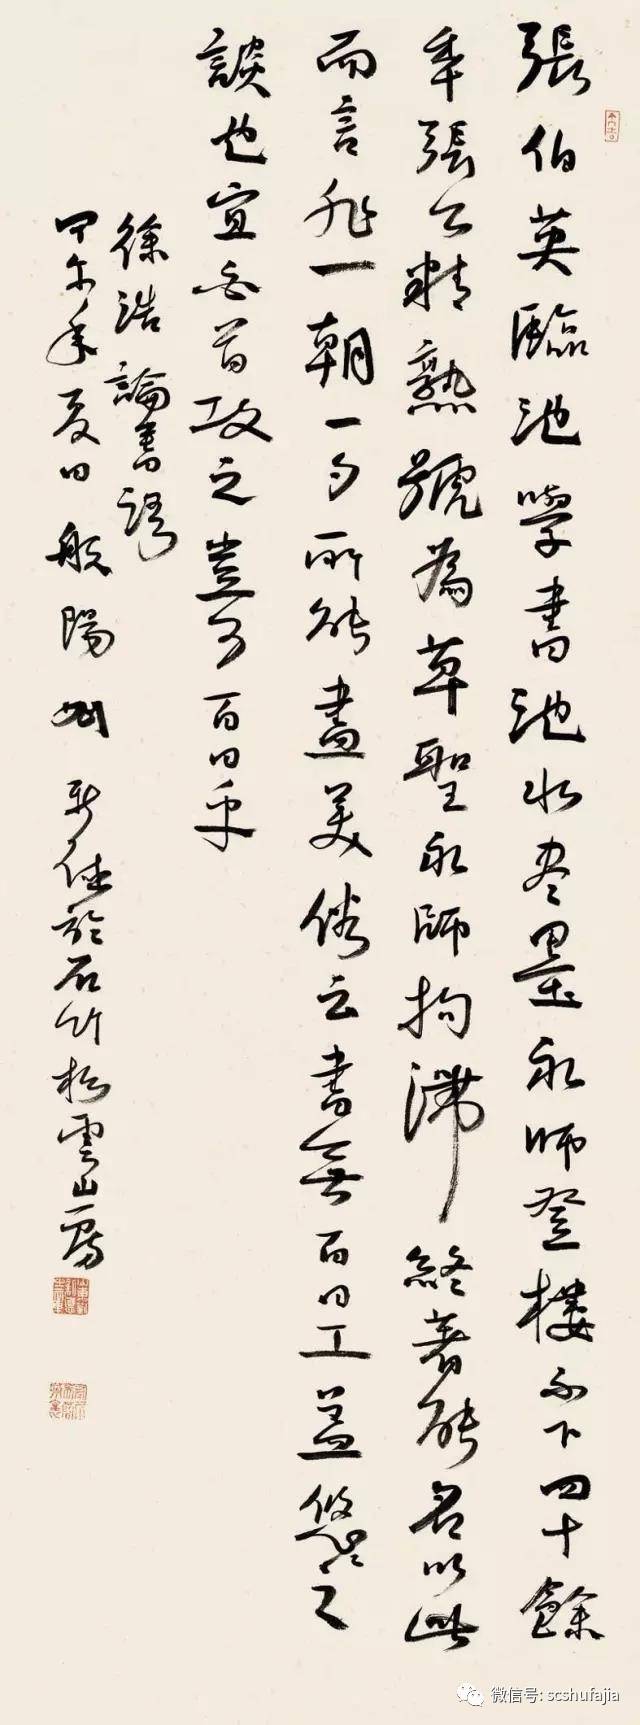 張伯英臨池學書池水尽墨永師登樓不下四十餘
年張公精熟號為草聖永師拘滯終著能名以此
而言非一朝一夕所能盡美俗云書無百日工蓋悠〻之
談也宜白首攻之豈可百日乎
徐浩論書語
甲午年夏日般陽刘新德於石竹松雲山房
微信号: scshufajia